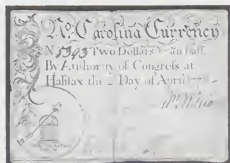 No. Carolina Currency
N 5393 Two Dollars & an half
By Authority of Congress at
Halifax the 2 Day of April